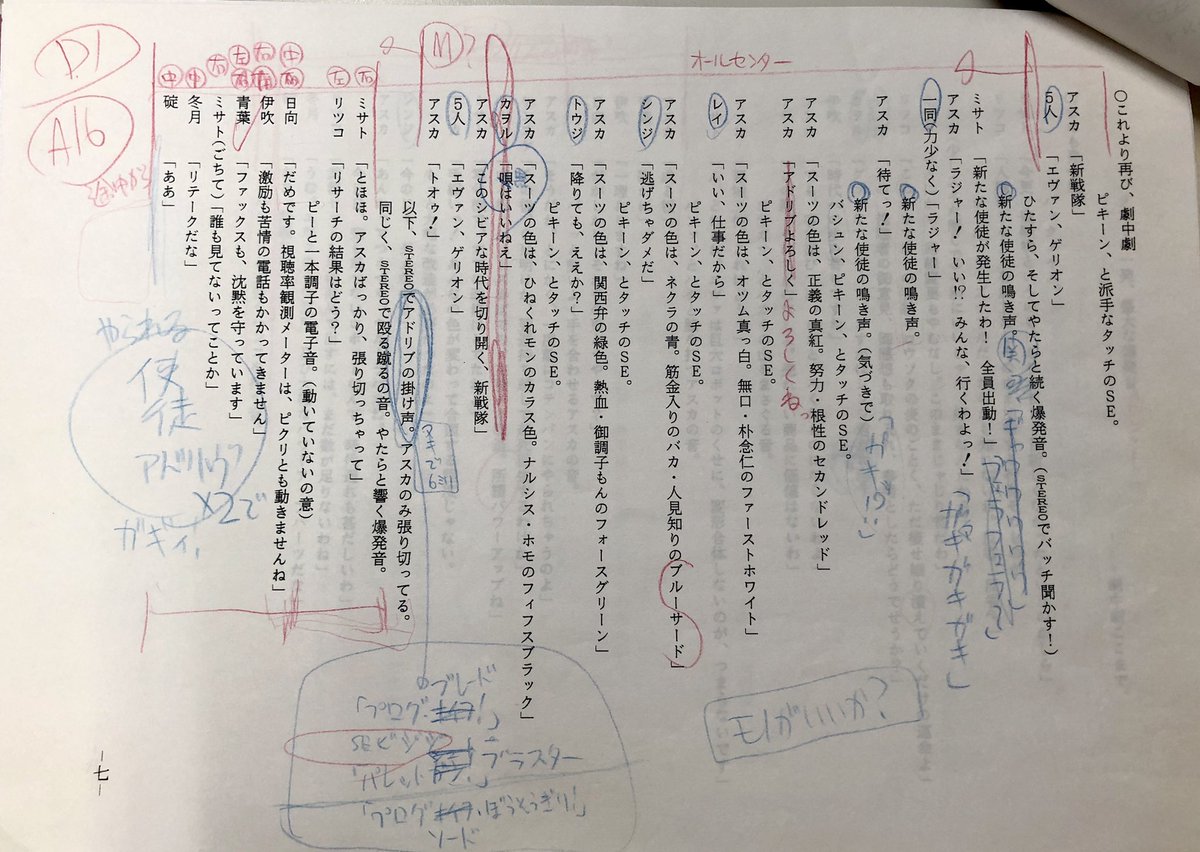 〇これより再び、劇中劇
ピキーン、と派手なタッチのSE。
アスカ「新戦隊」
5人「エヴァン、ゲリオン」
ひたすら、そしてやたらと続く爆発音。(STEREOでバッチ聞かす!)
新たな使徒の鳴き声。
ミサト「新たな使徒が発生したわ! 全員出動!」
アスカ「ラジャー! いい!? みんな、行くわよっ!」
「ガギガギ」
一同(力少なく)「ラジャー」
新たな使徒の鳴き声。
アスカ「待てっ!」
新たな使徒の鳴き声。(気づきで)
「ガギ!?」
バシュン、ピキーン、とタッチのSE。
アスカ「スーツの色は、正義の真紅。努力・根性のセカンドレッド」
アスカ「アドリブよろしく」
よろしくねっ
ピキーン、とタッチのSE。
アスカ「スーツの色は、オツム真っ白。無口・朴念仁のファーストホワイト」
レイ「いい、仕事だから」
ピキーン、とタッチのSE。
アスカ「スーツの色は、ネクラの青。筋金入りのバカ・人見知りのブルーサード」
シンジ「逃げちゃダメだ」
ピキーン、とタッチのSE。
アスカ「スーツの色は、関西弁の緑色。熱血・御調子もんのフォースグリーン」
トウジ「降りても、ええか?」
ピキーン、とタッチのSE。
アスカ「スーツの色は、ひねくれモンのカラス色。ナルシス・ホモのフィフスブラック」
カヲル「唄はいいねえ」
アスカ「このシビアな時代を切り開く、新戦隊」
5人「エヴァン、ゲリオン」
アスカ「トオゥ!」
以下、STEREOでアドリブの掛け声。アスカのみ張り切ってる。
同じく、STEREOで殴る蹴るの音。やたらと響く爆発音。
ミサト「とほほ。アスカばっかり、張り切っちゃって」
リツコ「リサーチの結果はどう?」
ピーと一本調子の電子音。(動いていないの意)
日向「だめです。視聴率観測メーターは、ピクリとも動きませんね」
伊吹「激励も苦情の電話もかかってきません」
青葉「ファックスも、沈黙を守っています」
ミサト(ごちて)「誰も見てないってことか」
冬月「リテークだな」
碇「ああ」
オールセンター
M?
右
左
中
右
左
右
中
中
D1
A16
やられる
使徒
アドリブ
×2で
ガギィ!
モノがいいか?
ブレード
「プログ
ブラスター
「パレット
「プログ
ソード
―七―